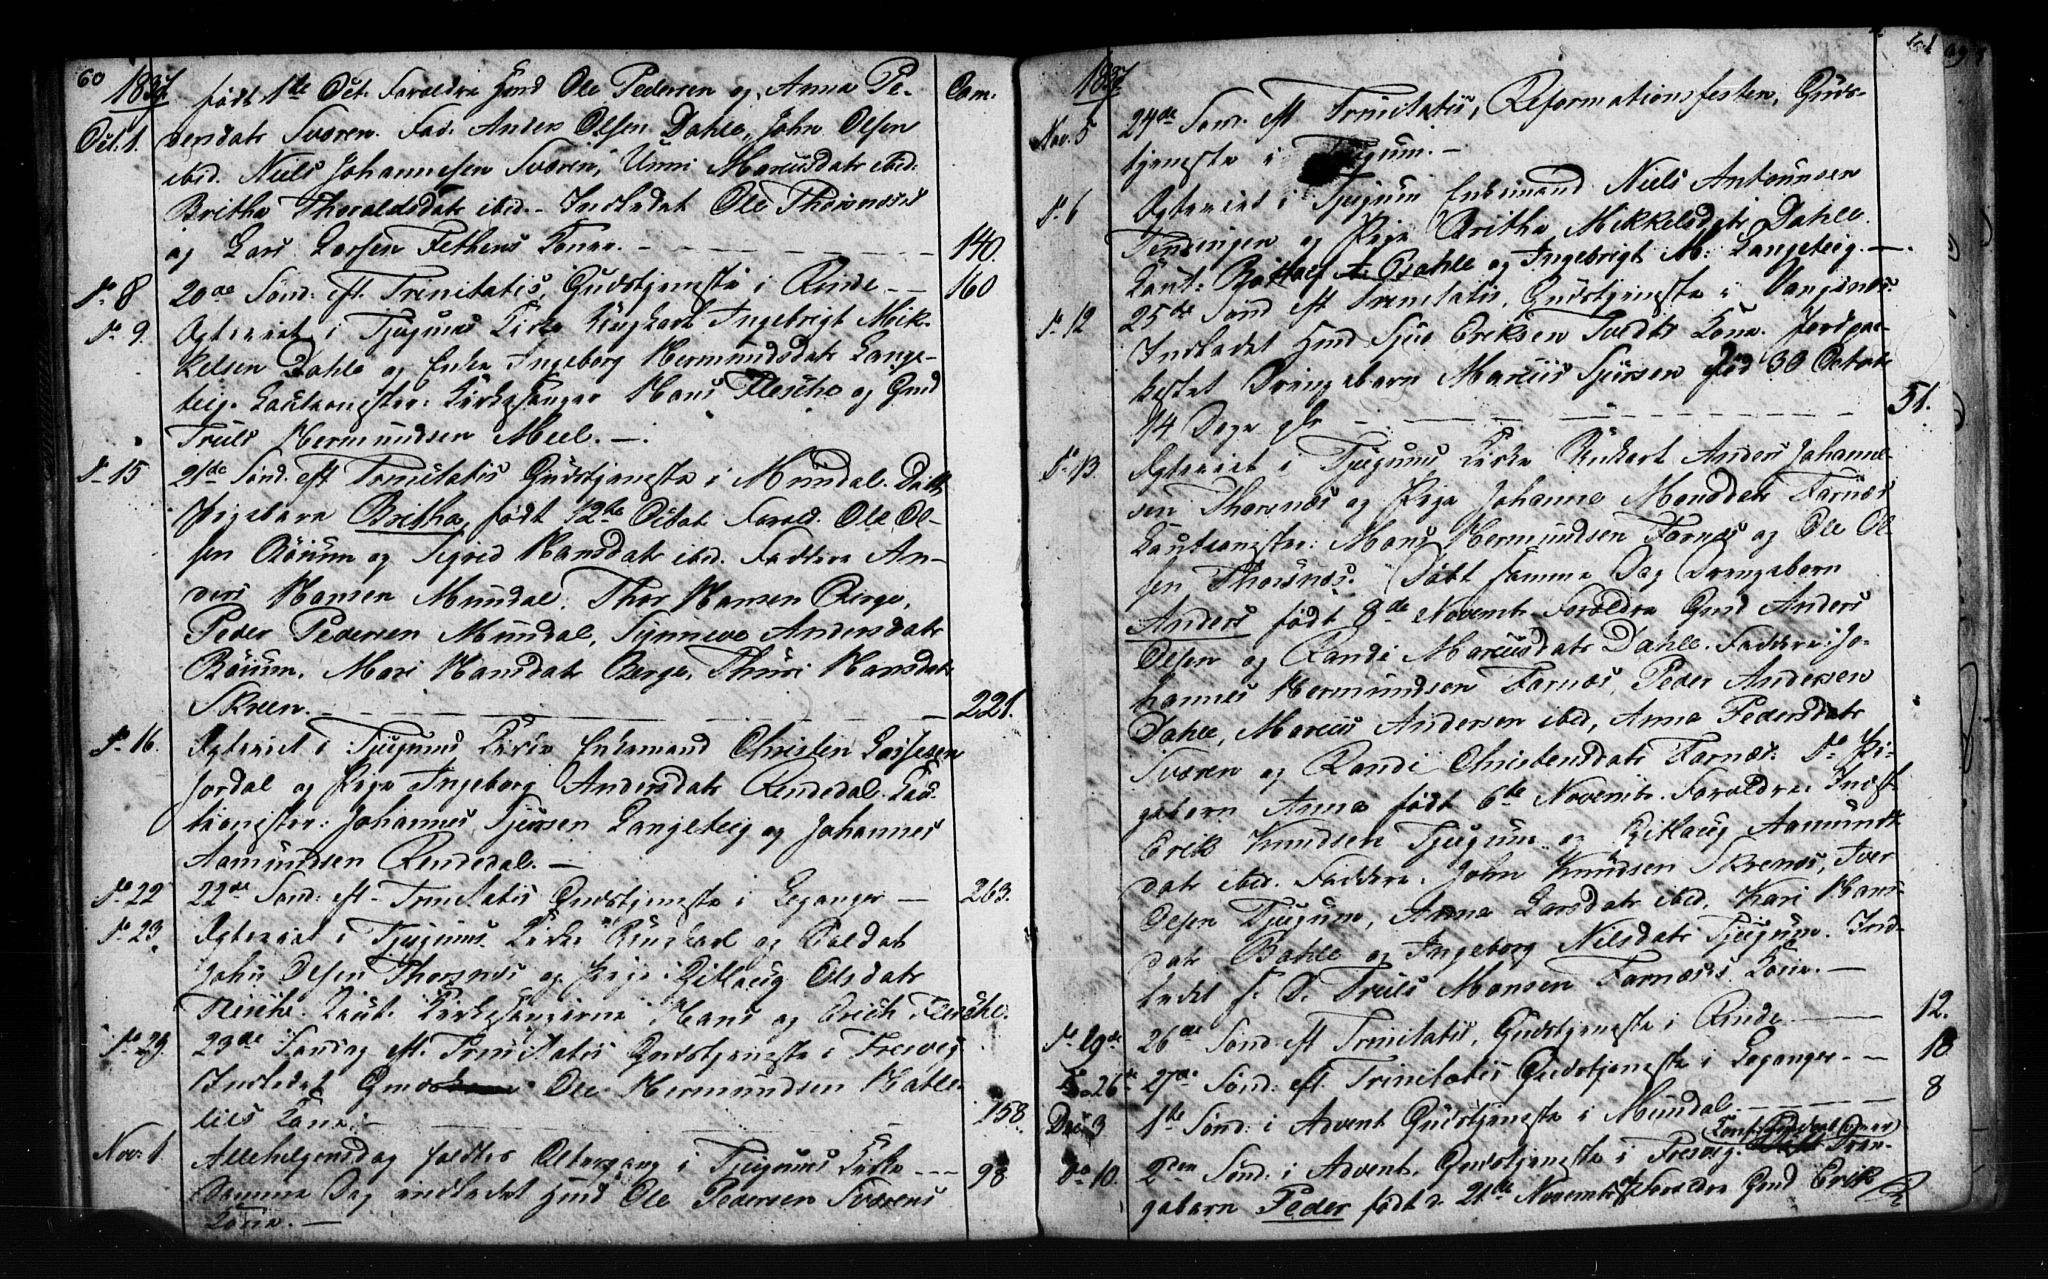 60
1837
født 1de Oct. Foreldre Hmd Ole Pedersen og Anna Pe- Com.
Oct. 1. dersdatr Sværen. Fad. Anders Olsen Dahle, John Olsen
ibid. Niels Johannesen Sværen, Unni Marcusdatr ibid.
Britha Thoraldsdatr ibid. - Indledet Ole Thorsnæs
og Lars Larsen Fethens Koner. - 140.
do 8 20de Sønd: eft. Trinitatis, Gudstjeneste i Rinde - 160
do 9. Egteviet i Tjugums Kirke Ungkarl Ingebrigt Mik-
kelsen Dahle og Enke Ingeborg Hermundsdatr Lange-
teig. Cautionister: Kirkesanger Hans Flesche og Gmd
Truls Hermundsen Meel. -
do 15 21de Sønd. eft Trinitatis Gudstjeneste i Mundal. Døbt
Pigebarn Britha, født 12te Octobr Foreld. Ole Ol-
sen Bøium og Sigrid Hansdatr ibid. Faddere An-
ders Hansen Mundal, Thor Hansen Berge,
Peder Pedersen Mundal, Synneve Andersdatr
Bøium, Mari Hansdatr Berge, Thuri Hansdatr
Skreen. - 221.
do 16. Egteviet i Tjugums Kirke Enkemand Christen
Jordal og Pige Ingeborg Andersdatr Rendedal. Cau-
tionister: Johannes Sjursen Langeteig og Johannes
Aamundsen Rendedal. -
do 22 22de Sønd: eft. Trinitatis Gudstjeneste i Leganger - 263.
do 23. Egteviet i Tjugums Kirke Ungkarl og Soldat
John Olsen Thorsnæs og Pige Gitlaug Olsdatr
Flesche. Caut. Kirkesangerne Hans og Erich Flesche.
do 29. 23de Søndag eft. Trinitatis Gudstjeneste i Fresvig
Indledet Gmd Ole Hermundsen
Kone. - 158.
Nov. 1 Allehelgensdag holdtes Altergang i Tjugums Kirke - 98
Samme Dag indledet Hmd Ole Pedersen Sværens
Kone. -
61
1837
Nov. 5 24de Sønd. eft Trinitatis, Reformationsfesten, Guds-
tjeneste i Tjugum. -
do 6 Egteviet i Tjugum Enkemand Niels Antounsen
og Pige Britha Mikkelsdatr Dahle.
Caut: A. Dahle og Ingebrigt M. Langeteig. -
do 12 25de Sønd eft Trinitatis, Gudstjeneste i Vangsnes.
Indledet Hmd Sjur Eriksen Tvedts Kone. Jordpaa-
kastet Drengebarn Marcus Sjursen fød 30 Octobr
14 Dage gl. - 51.
do 13. Egteviet i Tjugums Kirke Unkarl Anders Johanne-
sen Thorsnæs og Pige Johanne Monsdatr Farnæs
Cautionister: Mons Hermundsen Farnæs og Ole Ol-
sen Thorsnæs. Døbt samme Dag Drengebarn
Anders født 8de Novembr Foreldre Gmd Anders
Olsen og Randi Marcusdatr Dahle. Faddere: Jo-
hannes Hermundsen Farnæs, Peder Andersen
Dahle, Marcus Andersen ibid, Anna Pedersdatr
Sværen og Randi Christensdatr Farnæs. do Pi-
gebarn Anna født 6te Novembr. Foreldre: Indst
Erik Knudsen Tjugum og Gitlaug Aamunds-
datr ibid. Faddere: John Knudsen Skrenes, Iver
Olsen Tjugum, Anna Larsdatr ibid, Kari Hans-
datr Bahle og Ingeborg Nilsdatr Tjugum. Ind-
ledet s. D. Truls Monsen Farnæs's Kone. -
do 19de 26de Sønd: eft Trinitatis, Gudstjeneste i Rinde - 12.
do 26de 27de Sønd: eft. Trinitatis Gudstjeneste i Leganger - 18
Des 3 1ste Sønd: i Advent Gudstjeneste i Mundal - 8
do 10. 2den Sønd: i Advent. Gudstjeneste i Fresvig. Dren-
gebarn Peder født d. 21de Novembr Foreldre Gmd Erik